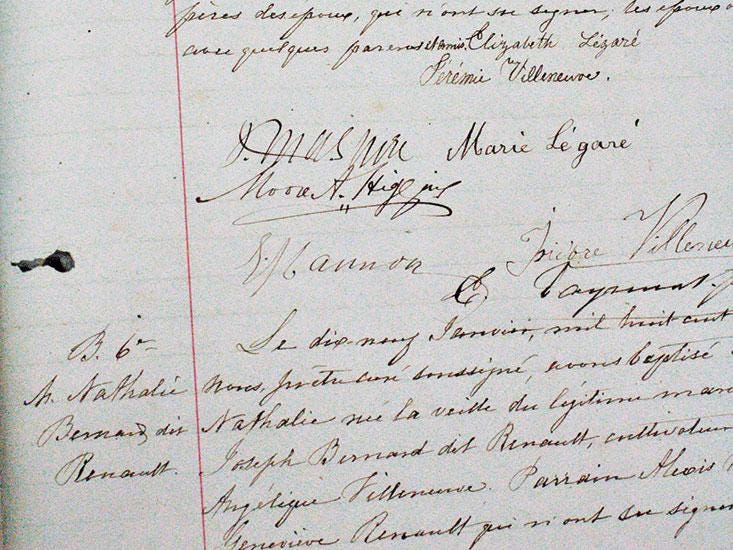 pères des époux, qui n'ont su signer, les époux
avec quelques parens et amis. Elizabeth Légaré
Jérémie Villeneuve.
Marie Légaré
Moore A. Higgins
Villeneu
B. 6e
M. Nathalie
Bernard dit
Renault.
Le dix-neuf Janvier, mil huit cent
nous, prêtre curé soussigné, avons baptisé
Nathalie née la veille du légitime mari
Joseph Bernard dit Renault, cultivateur
Angélique Villeneuve. Parrain Alexis
Geneviève Renault qui n'ont su signer